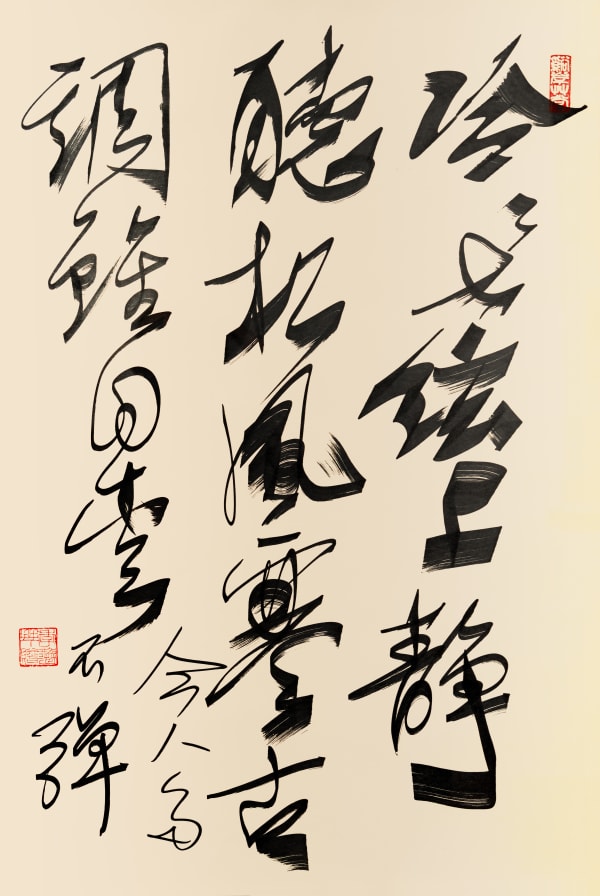 泠々七絃上静
聽松風寒古
調雖自愛
今人多
不彈